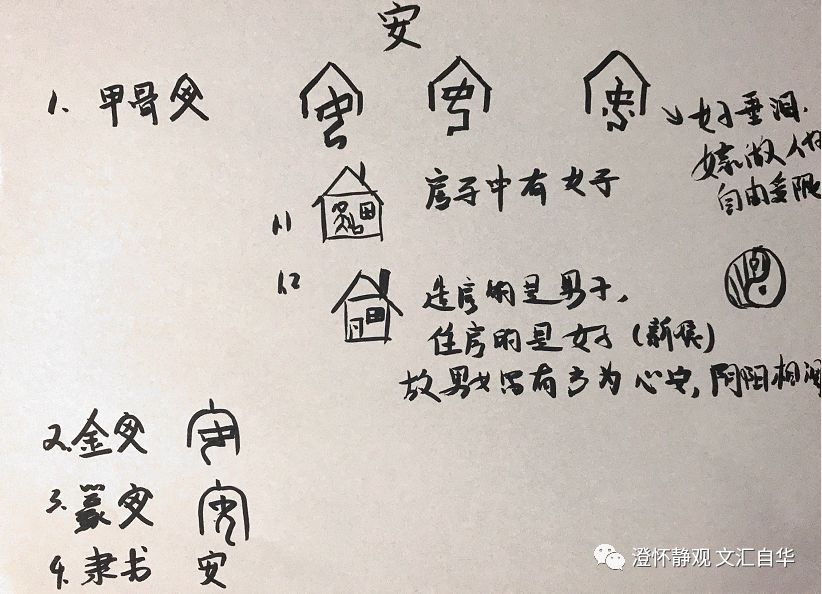 安
1. 甲骨文
女子垂泪.
嫁做人
自由受限
1.1 房子中有女子
1.2 造房的是男子,
住房的是女子(新娘)
故男女皆有方为心安,阴阳相
2.金文
3.篆文
4.隶书 安
澄怀静观 文汇自华